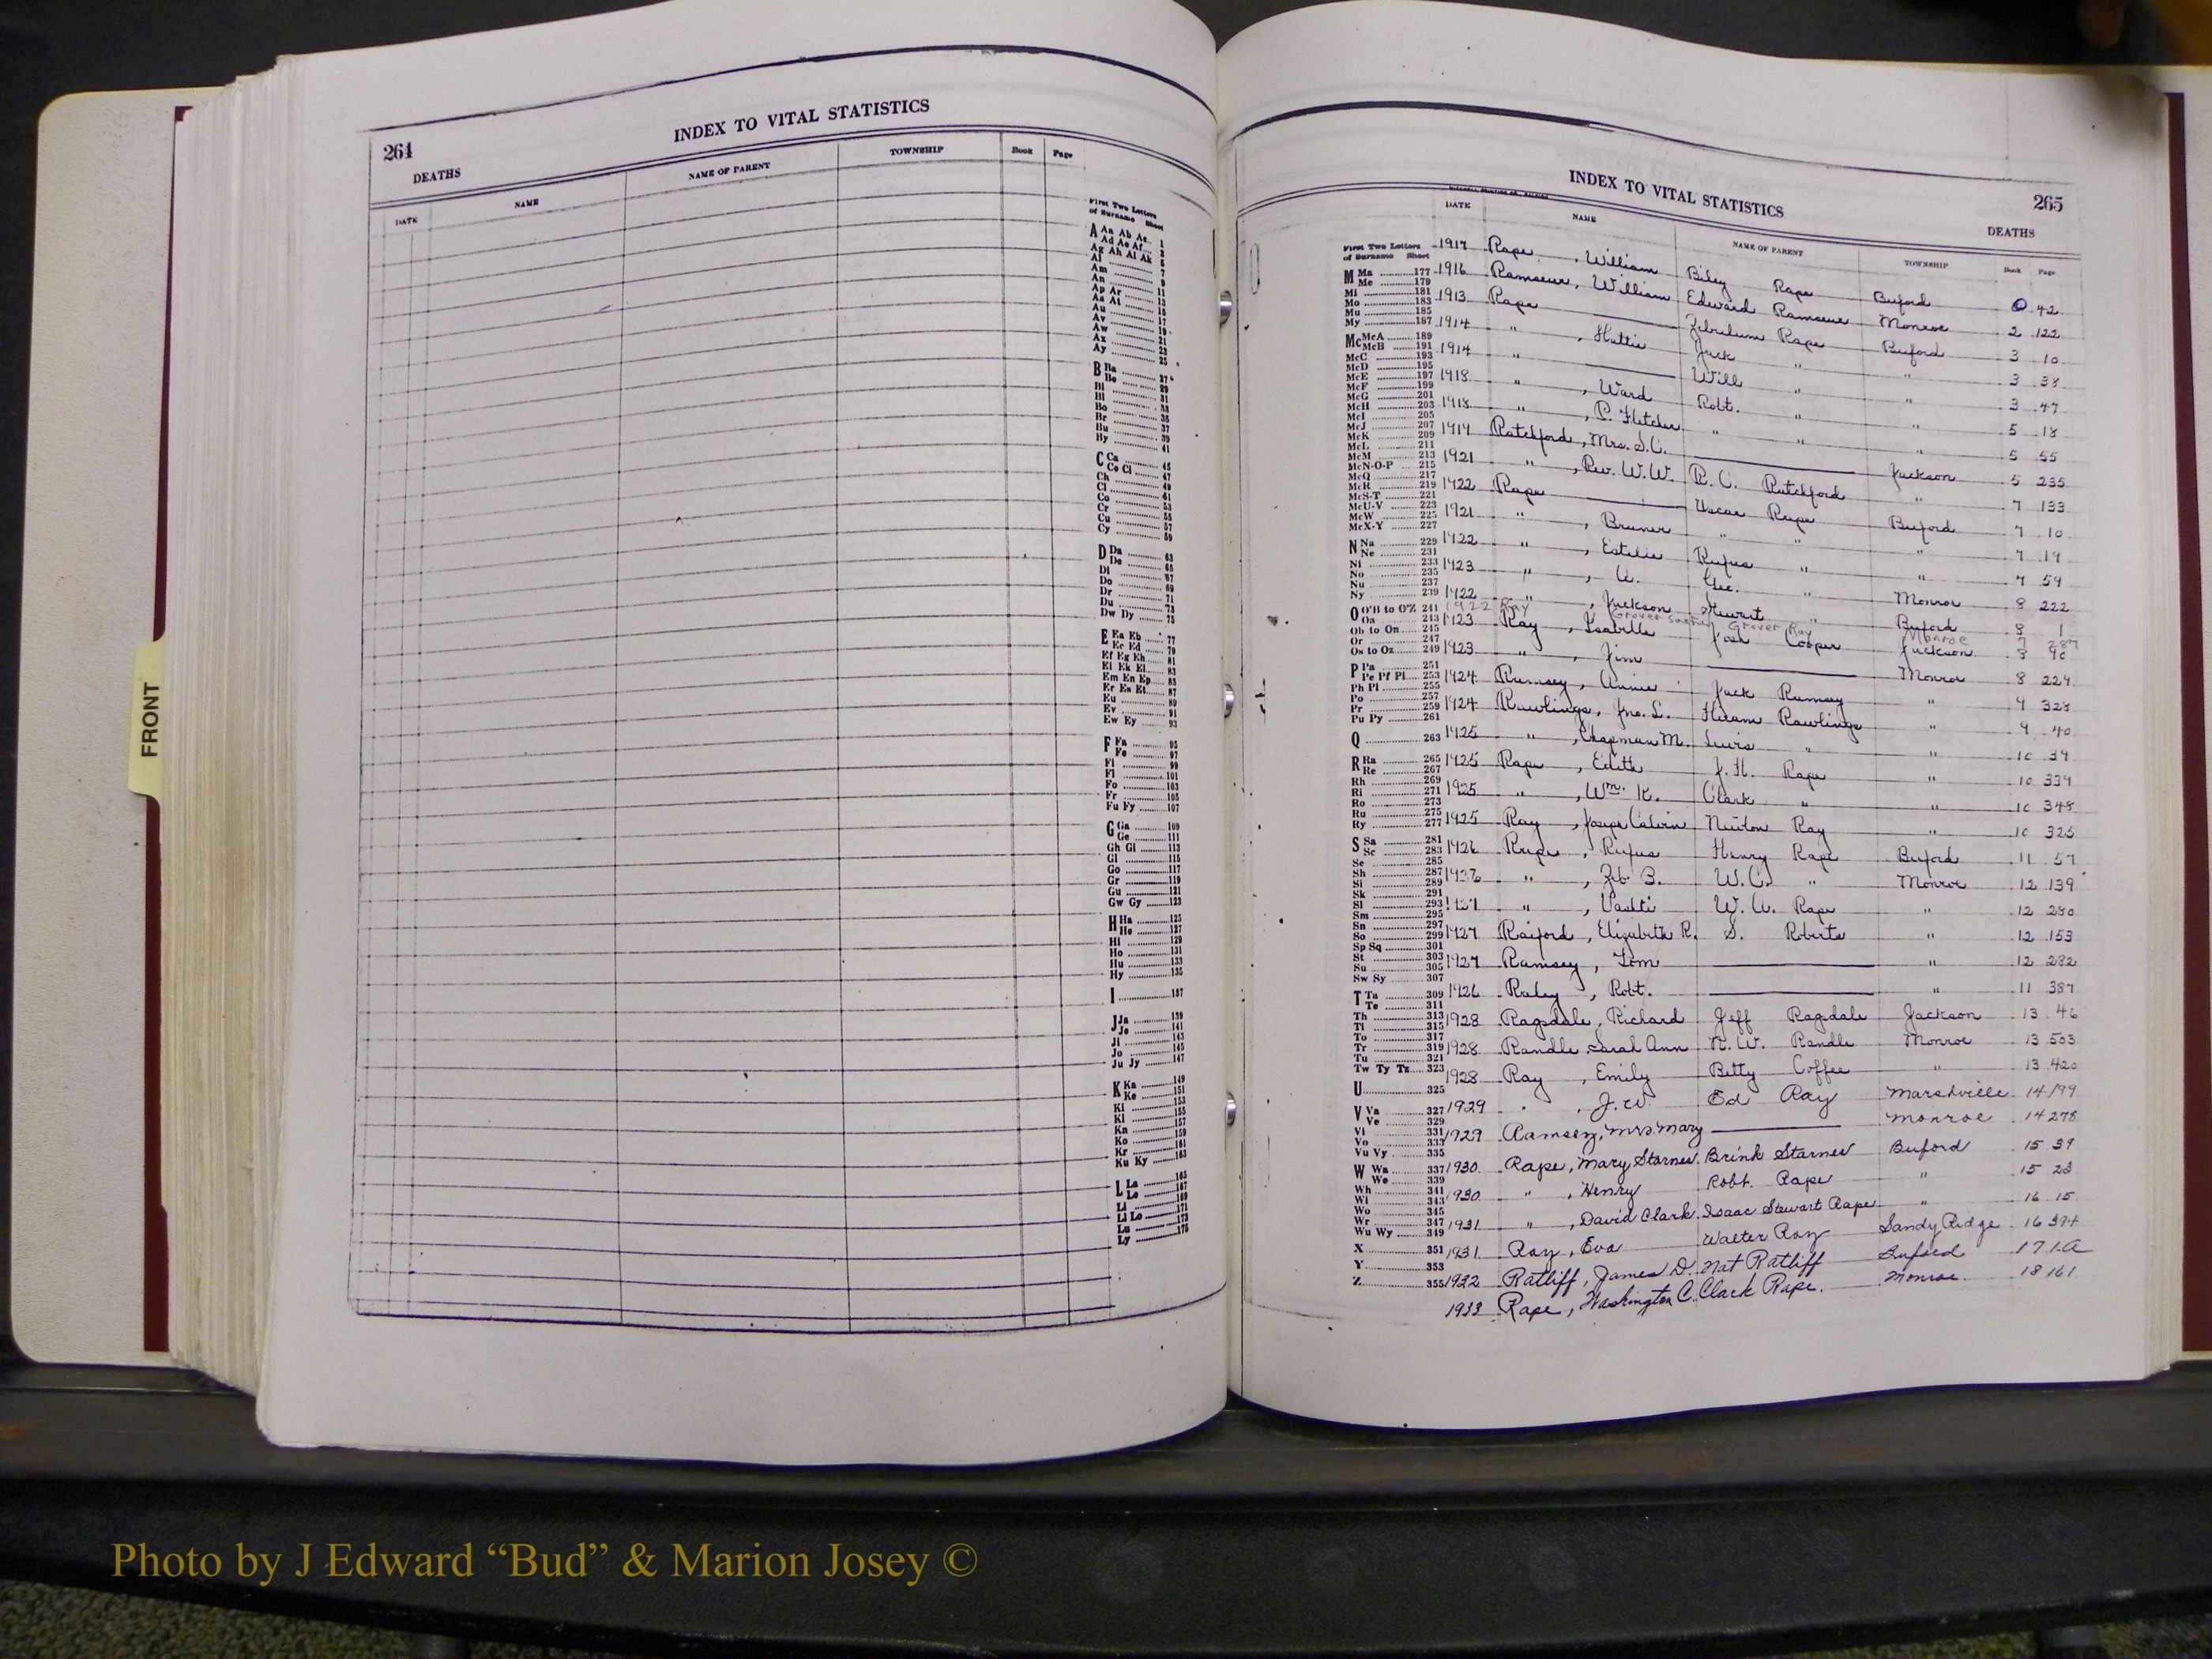 264
INDEX TO VITAL STATISTICS
DEATHS
DATE NAME NAME OF PARENT TOWNSHIP Book Page
First Two Letters
of Surname Sheet
A Aa Ab Ac 1
Ad Ae Af 3
Ag Ah Ai Ak 5
Al 7
Am 9
An 11
Ap Ar 13
As At 15
Au 17
Av 19
Aw 21
Ax 23
Ay 25
B Ba 27
Be 29
Bi 31
Bl 33
Bo 35
Br 37
Bu 39
By 41
C Ca 45
Ce Ci 47
Ch 49
Cl 51
Co 53
Cr 55
Cu 57
Cy 59
D Da 63
De 65
Di 67
Do 69
Dr 71
Du 73
Dw Dy 75
E Ea Eb 77
Ec Ed 79
Ef Eg Eh 81
Ei Ek El 83
Em En Ep 85
Er Es Et 87
Eu 89
Ev 91
Ew Ey 93
F Fa 95
Fe 97
Fi 99
Fl 101
Fo 103
Fr 105
Fu Fy 107
G Ga 109
Ge 111
Gh Gi 113
Gl 115
Go 117
Gr 119
Gu 121
Gw Gy 123
H Ha 125
He 127
Hi 129
Ho 131
Hu 133
Hy 135
I 137
J Ja 139
Je 141
Ji 143
Jo 145
Ju Jy 147
K Ka 149
Ke 151
Ki 153
Kl 155
Kn 157
Ko 159
Kr 161
Ku Ky 163
L La 165
Le 167
Li 169
Ll Lo 171
Lu 173
Ly 175
FRONT
INDEX TO VITAL STATISTICS
265
DEATHS
DATE NAME NAME OF PARENT TOWNSHIP Book Page
First Two Letters
of Surname Sheet
M Ma 177
Me 179
Mi 181
Mo 183
Mu 185
My 187
Mc McA 189
McB 191
McC 193
McD 195
McE 197
McF 199
McG 201
McH 203
McI 205
McJ 207
McK 209
McL 211
McM 213
McN-O-P 215
McQ 217
McR 219
McS-T 221
McU-V 223
McW 225
McX-Y 227
N Na 229
Ne 231
Ni 233
No 235
Nu 237
Ny 239
O O'B to O'Z 241
Oa 243
Ob to On 245
Or 247
Os to Oz 249
P Pa 251
Pe Pf Pi 253
Ph Pl 255
Po 257
Pr 259
Pu Py 261
Q 263
R Ra 265
Re 267
Rh 269
Ri 271
Ro 273
Ru 275
Ry 277
S Sa 281
Sc 283
Se 285
Sh 287
Si 289
Sk 291
Sl 293
Sm 295
Sn 297
So 299
Sp Sq 301
St 303
Su 305
Sw Sy 307
T Ta 309
Te 311
Th 313
Ti 315
To 317
Tr 319
Tu 321
Tw Ty Tz 323
U 325
V Va 327
Ve 329
Vi 331
Vo 333
Vu Vy 335
W Wa 337
We 339
Wh 341
Wi 343
Wo 345
Wr 347
Wu Wy 349
X 351
Y 353
Z 355
1917 Rape, William Biley Rape Buford 42
1916 Ramseur, William Edward Ramseur Monroe 2 122
1913 Rape Zebulum Rape Buford 3 10
1914 " , Hattie Jack " " 3 38
1914 " Will " " 3 47
1918 " , Ward Robt. " " 5 18
1918 " , P. Fletcher " " " 5 55
1919 Ratchford, Mrs. S.C. Jackson 5 235
1921 " , Rev. W.W. R. C. Ratchford " 7 133
1922 Rape Oscar Rape Buford 7 10
1921 " , Bruner " " " 7 19
1922 " , Estelle Rufus " " 7 59
1923 " , A. Geo. " Monroe 8 222
1922 " , Jackson Stewart " Buford 8 1
1922 Ray Grover Grover Ray Monroe 7 287
1923 Ray, Isabella Josh Cooper Jackson 8 90
1923 " , Jim Monroe 8 229
1924 Ramsey, Annie Jack Ramsay " 9 328
1924 Rawlings, Jno. L. Hiram Rawlings " 9 40
1925 " , Chapman M. Lewis " " 10 39
1925 Rape, Edith J. H. Rape " 10 339
1925 " , Wm. K. Clark " " 10 348
1925 Ray, Joseph Calvin Newton Ray " 10 325
1926 Rape, Rufus Henry Rape Buford 11 57
1926 " , Zeb B. W.C. " Monroe 12 139
1927 " , Vashti W. A. Rape " 12 280
1927 Raiford, Elizabeth R. S. Roberts " 12 153
1927 Ramsey, Tom " 12 282
1926 Raley, Robt. " 11 387
1928 Ragsdale, Richard Jeff Ragsdale Jackson 13 46
1928 Randle, Sarah Ann N. W. Randle Monroe 13 503
1928 Ray, Emily Betty Coffee " 13 420
1929 " , J.W. Ed Ray Marshville 14 199
1929 Ramsey, Mrs. Mary Monroe 14 278
1930 Rape, Mary Starnes Brink Starnes Buford 15 39
1930 " , Henry Robt. Rape " 15 23
1931 " , David Clark Isaac Stewart Rape " 16 15
1931 Ray, Eva Walter Ray Sandy Ridge 16 394
1932 Ratliff, James D. Nat Ratliff Buford 17 1-A
1933 Rape, Washington C. Clark Rape Monroe 18 161
Photo by J Edward “Bud” & Marion Josey ©